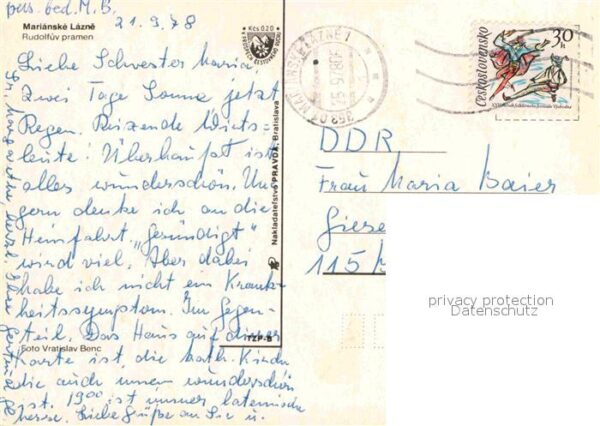 pers. bed. M. B.
Mariánské Lázně
Rudolfův pramen
21.9.78
Kčs 0,20
Liebe Schwester Maria
Zwei Tage Sonne jetzt
Regen. Reizende Wirts-
leute! Überhaupt ist
alles wunderschön. Un
gern denke ich an die
Heimfahrt. „Gesündigt"
wird viel. Aber dabei
habe ich nicht ein Krank
heitssymptom. Im Gegen-
teil. Das Haus auf dieser
Karte ist, die kath. Kirche
die auch innen wunderschön
ist. 1900 ist immer lateinische
Messe. Liebe Grüße an Sie u.
Sr. Margarethe herzl. Ihre Gertrud
Foto Vratislav Benc
TZP-5
Nakladateľstvo PRAVDA, Bratislava
MARIÁNSKÉ LÁZNĚ 1
353 01
Československo
30 h
DDR
Frau Maria Baier
Giese
115
privacy protection
Datenschutz